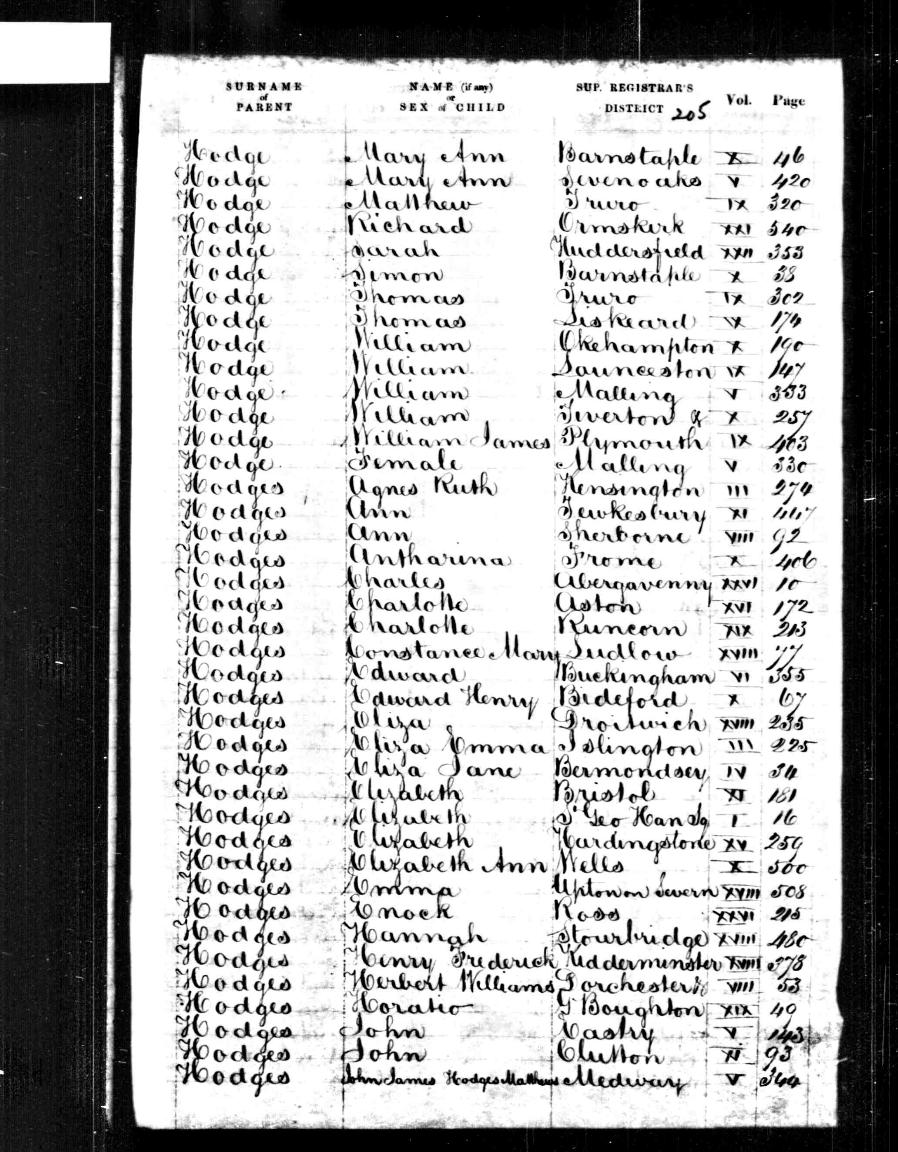 SURNAME of PARENT NAME (if any) or SEX of CHILD SUP. REGISTRAR'S DISTRICT Vol. Page
205
Hodge Mary Ann Barnstaple X 46
Hodge Mary Ann Sevenoaks V 420
Hodge Matthew Truro IX 320
Hodge Richard Ormskirk XXI 540
Hodge Sarah Huddersfield XXII 353
Hodge Simon Barnstaple X 38
Hodge Thomas Truro IX 302
Hodge Thomas Liskeard IX 174
Hodge William Okehampton X 190
Hodge William Launceston IX 147
Hodge William Malling V 333
Hodge William Tiverton & X 257
Hodge William James Plymouth IX 403
Hodge Female Malling V 330
Hodges Agnes Ruth Kensington III 274
Hodges Ann Tewkesbury XI 447
Hodges Ann Sherborne VIII 92
Hodges Antharina Frome X 406
Hodges Charles Abergavenny XXVI 10
Hodges Charlotte Aston XVI 172
Hodges Charlotte Runcorn XIX 213
Hodges Constance Mary Ludlow XVIII 77
Hodges Edward Buckingham VI 355
Hodges Edward Henry Bideford X 67
Hodges Eliza Droitwich XVIII 235
Hodges Eliza Emma Islington III 225
Hodges Eliza Jane Bermondsey IV 34
Hodges Elizabeth Bristol XI 181
Hodges Elizabeth St Geo Han Sq I 16
Hodges Elizabeth Hardingstone XV 259
Hodges Elizabeth Ann Wells X 500
Hodges Emma Upton on Severn XVIII 508
Hodges Enock Ross XXVI 215
Hodges Hannah Stourbridge XVIII 480
Hodges Henry Frederick Kidderminster XVIII 378
Hodges Herbert Williams Dorchester & VIII 53
Hodges Horatio G Boughton XIX 49
Hodges John Eastry V 143
Hodges John Clutton XI 93
Hodges John James Hodges Matthews Medway V 344